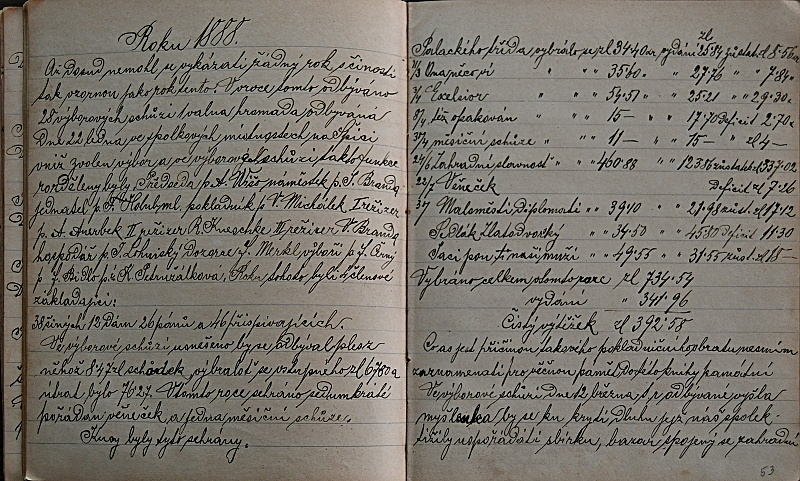 Roku 1888.
Až dosud nemohl se vykázati žádný rok s čiností
tak vzornou jako rok tento. V roce tomto odbýváno
28 výborových schůzí 1 valna hromada odbývaná
Dne 22 ledna ve spolkových místnostech na Špici
v níž zvolen výbor a ve výborové schůzi takto funkce
rozděleny byly. Předseda p. A. náměstek p. J. Branda
jednatel p. A. Holub ml. pokladník p V. Michálek I režizer
p. A. Auerbek II režizer R. Kneschke II režiser V. Branda
hospodář p. T. Lohniský Dozorce J. Merkl výboři p. J. Černý
p J. Bidlo pí K. Petružálková, Roku tohoto byli 4 členové
zakládající:
38 činých 12 Dám 26 pánů a 46 přispívajících.
Ve výborové schůzi usnešeno by se odbýval ples z
něhož 847 zl schodek, vybralať se vstupného zl 67 80 a
útrat bylo 76 27. V tomto roce sehráno sedumkráté
pořádán věneček a jedna měsíční schůze.
Kusy byly tyto sehrány.
Palackého třída vybralo se zl 34 40 kr vydání zl 25 84 zůstatek zl 8·56 kr
Ona něco ví " " 35 60 " " 27·76 " " 7·84
Excelsior " " 54·51 " " 25 21 " " 29·30
8/4 též opakován " " 15— " " 17·70 deficit 2·70
měsíční schůze " " 11— " " 15— " zl 4—
24/6 Zahradní slavnost " " 460·88 " " 123·86 zůstatek zl 337·02
22/7 Věneček Deficit zl 7·26
Maloměstští Diplomati " " 39 10 " " 21·98 zůst. zl 17·12
Zlatodvorský " " 34·50 " " 45·80 deficit 11·30
Jací jsou ti naši muži " " 49·55 " " 31·55 zůst. zl 18—
Vybráno celkem v tomto roce zl 734·54
vydání " 341·96
Čistý výtěžek zl 392·58
Co as jest příčinou takového pokladničního obratu nesmím
zaznamenati pro věčnou paměť do této knihy pamětní
Ve výborové schůzi dne 12 března t. r. odbývané vyšla
myšlenka by se ku krytí dluhu jejž náš spolek
tížily uspořádati sbírku, bazar spojený se zahradní
53